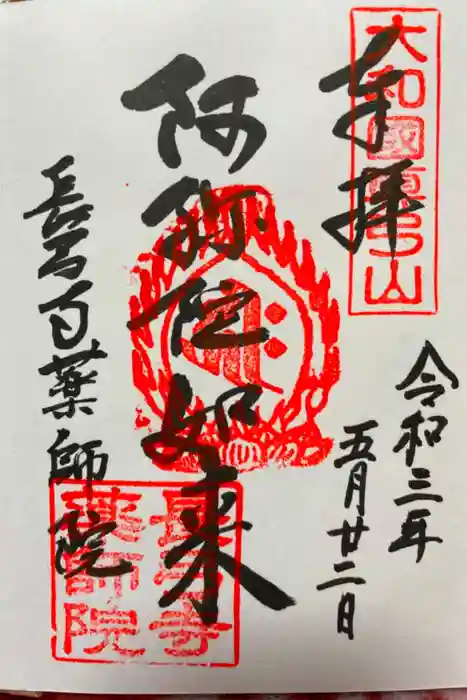 奉拝
大和國真弓山
令和三年
五月廿二日
阿弥陀如来
長弓寺薬師院
長弓寺
薬師院